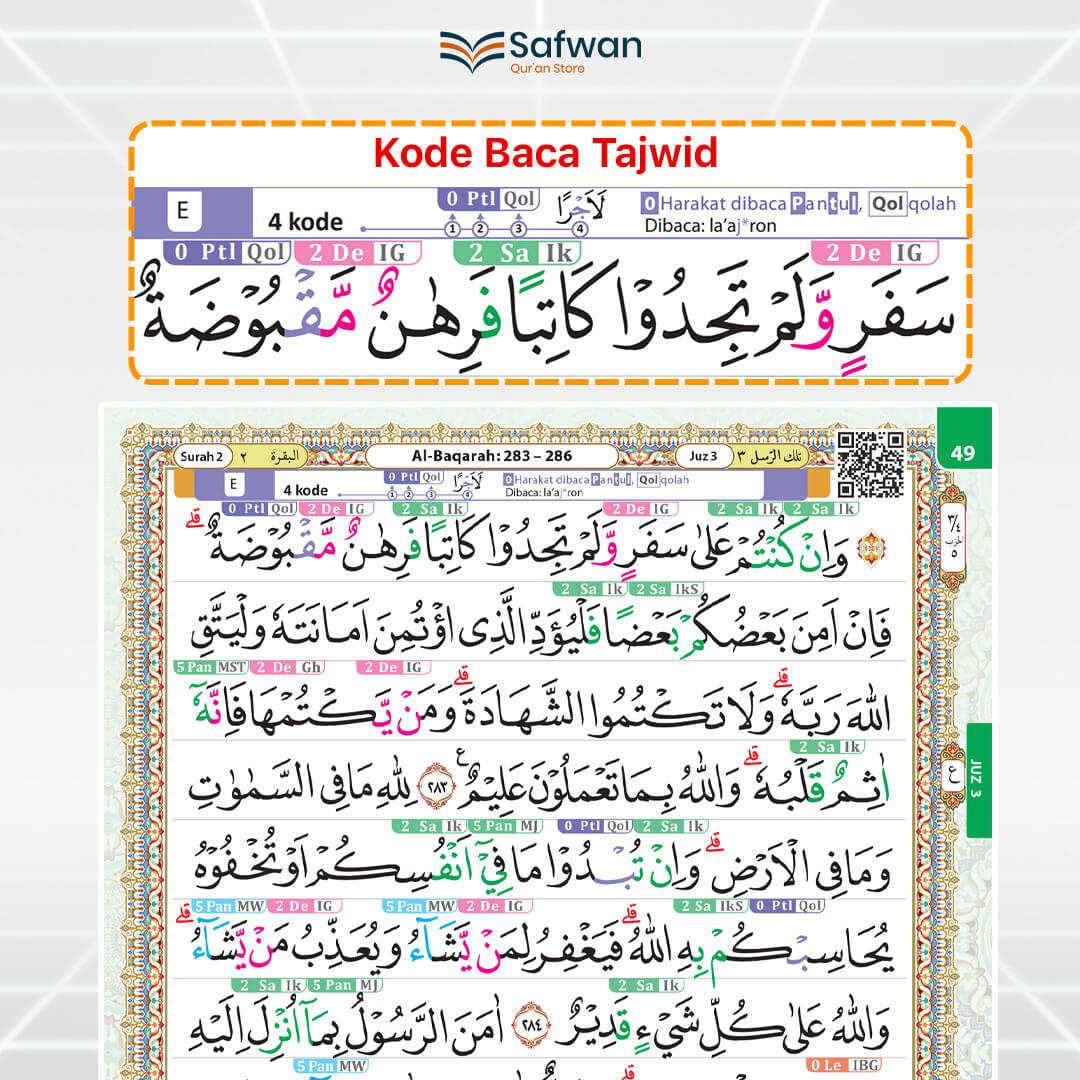 Safwan
Qur'an Store
Kode Baca Tajwid
E
4 kode
0 Ptl Qol
1 2 3 4
لَاَجْرًا
0 Harakat dibaca Pantul, Qolqolah
Dibaca: la’aj*ron
0 Ptl Qol 2 De IG 2 Sa Ik 2 De IG
سَفَرٍ وَّلَمْ تَجِدُوْا كَاتِبًا فَرِهٰنٌ مَّقْبُوْضَةٌ
49
Surah 2 ٢ البقرة
Al-Baqarah: 283 – 286
Juz 3 تلك الرّسل ٣
E
4 kode
0 Ptl Qol
1 2 3 4
لَاَجْرًا
0 Harakat dibaca Pantul, Qolqolah
Dibaca: la’aj*ron
٣/٤
الحزب
٥
0 Ptl Qol 2 De IG 2 Sa Ik 2 De IG 2 Sa Ik 2 Sa Ik
وَاِنْ كُنْتُمْ عَلٰى سَفَرٍ وَّلَمْ تَجِدُوْا كَاتِبًا فَرِهٰنٌ مَّقْبُوْضَةٌ ۗ قلے
2 Sa Ik 2 Sa IkS
فَاِنْ اَمِنَ بَعْضُكُمْ بَعْضًا فَلْيُؤَدِّ الَّذِى اؤْتُمِنَ اَمَانَتَهٗ وَلْيَتَّقِ
5 Pan MST 2 De Gh 2 De IG
اللّٰهَ رَبَّهٗ قلے وَلَا تَكْتُمُوا الشَّهَادَةَ قلے وَمَنْ يَّكْتُمْهَا فَاِنَّهٗٓ
2 Sa Ik
اٰثِمٌ قَلْبُهٗ قلے وَاللّٰهُ بِمَا تَعْمَلُوْنَ عَلِيْمٌ ع ٢٨٣ لِلّٰهِ مَا فِى السَّمٰوٰتِ
ع
JUZ 3
2 Sa Ik 5 Pan MJ 0 Ptl Qol 2 Sa Ik
وَمَا فِى الْاَرْضِ قلے وَاِنْ تُبْدُوْا مَا فِيْٓ اَنْفُسِكُمْ اَوْ تُخْفُوْهُ
5 Pan MW 2 De IG 5 Pan MW 2 De IG 2 Sa IkS 0 Ptl Qol
يُحَاسِبْكُمْ بِهِ اللّٰهُ قلے فَيَغْفِرُ لِمَنْ يَّشَاۤءُ وَيُعَذِّبُ مَنْ يَّشَاۤءُ قلے
2 Sa Ik 5 Pan MJ 2 Sa Ik
وَاللّٰهُ عَلٰى كُلِّ شَيْءٍ قَدِيْرٌ ٢٨٤ اٰمَنَ الرَّسُوْلُ بِمَآ اُنْزِلَ اِلَيْهِ
5 Pan MW 0 Le IBG